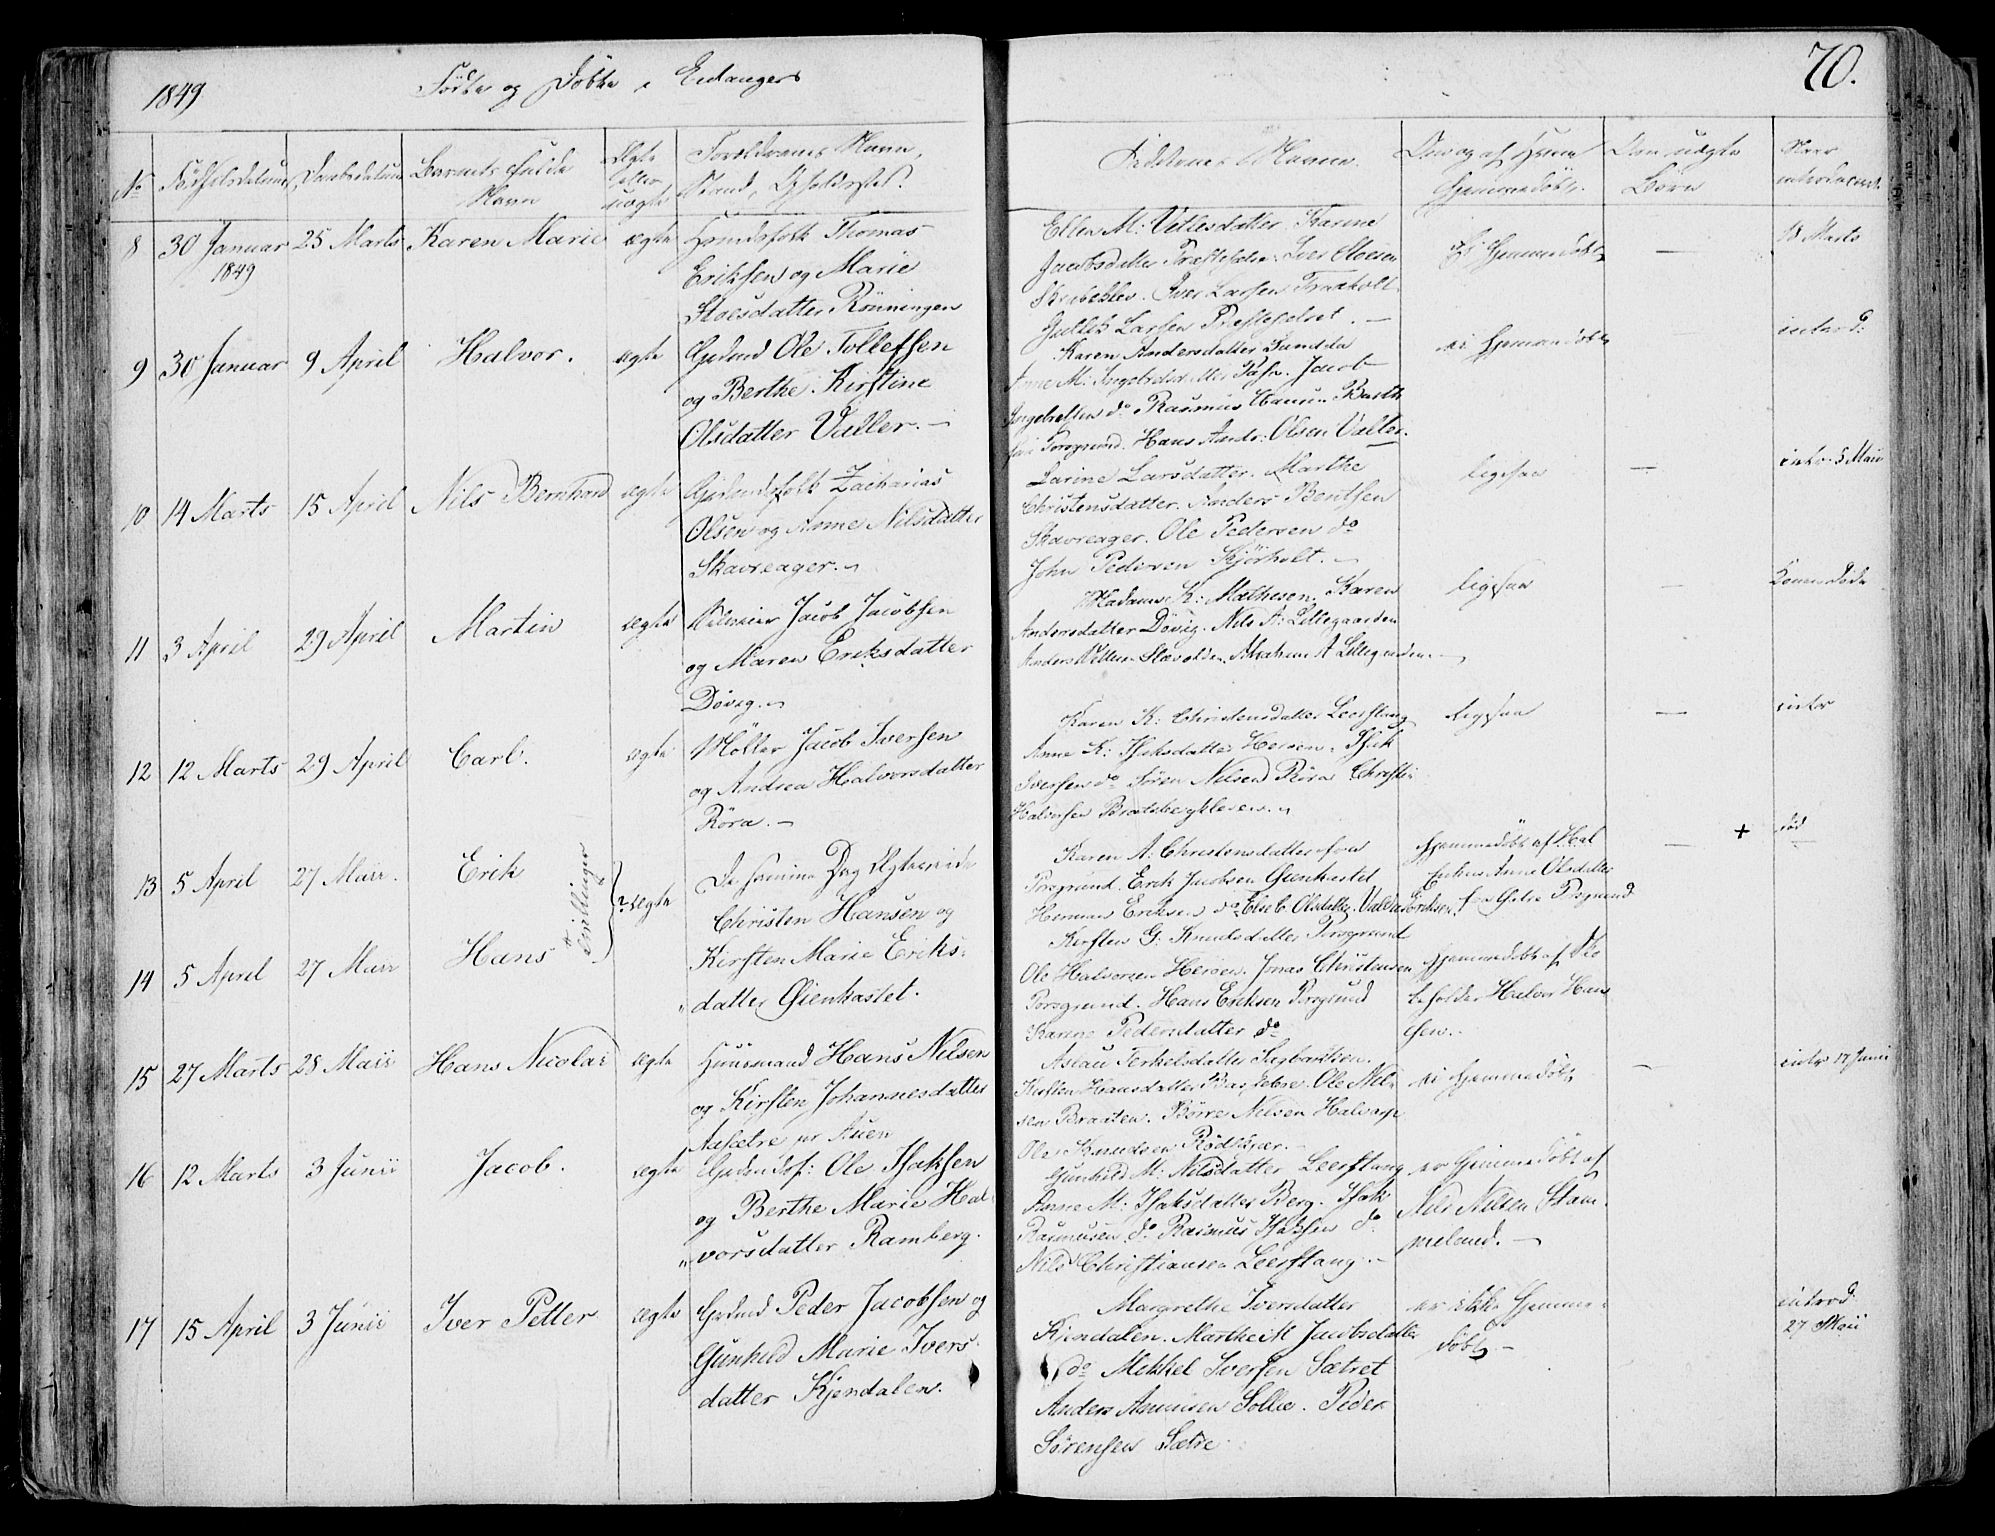 1849 Födte og Döbte i Eidanger
70.
No Födselsdatum Daabsdatum Barnets fulde Navn Ægte eller uægte Forældrenes Navn, Stand, Opholdssted.
Faddernes Navne. Om og af Hvem Hjemmedöbt. Om uægte Börn Naar introduceret
8 30 Januar 1849 25 Marts Karen Marie ægte
Huusfolk Thomas
Eriksen og Marie
Stoesdatter Rönningen
Ellen M: Vetlesdatter. Karine
Jacobsdatter Præstesætre. Iver Stoesen
Skrubeklev. Iver Larsen Traaholt
Gullik Larsen Præstesætret. —
Ei Hjemmedöbt
—
18 Marts
9 30 Januar 9 April Halvor. ægte
Grdmd Ole Tollefsen
og Berthe Kirstine
Olsdatter Valler. —
Karen Andersdatter Sundda
Anne M: Ingebrets Jacob
Ingebretsen do Rasmus Hansen Barth
fra Porsgrund. Hans Andr: Olsen Valler.
ei Hjemmedöbt
introd:
10 14 Marts 15 April Nils Bernhard ægte
Gaardmfolk Zacharias
Olsen og Anne Nilsdatter
Skavreager. —
Larine Larsdatter. Marthe
Christensdatter. Anders Bentsen
Skavreager. Ole Pedersen do
John Pedersen Kjörholt. —
ligesaa
—
intr. 5 Maii
11 3 April 29 April Martin ægte
Jacob Jacobsen
og Maren Eriksdatter
Döveg. —
Madame K: Mathesen. Karen
Andersdatter Dövig. Nils A: Lillegaarden
Anders Abraham A Lillegaarden. —
ligesaa
—
Konen döde
12 12 Marts 29 April Carl. ægte
Möller Jacob Iversen
og Andrea Halvorsdatter
Röra. —
Karen K: Christensdatter Leerstang
Anne K: Isaksdatter Heröen. Isak
Iversen do Sören Nilsen Röra Christen
Halvorsen Bratsbergkleven. —
ligesaa
—
intr
13 5 April 27 Maii. Erik
Tvillinger
2 Ægte
De samme Dag Ægteviede
Christen Hansen og
Karen A: Christensdatter fra
Porsgrund. Erik Jacobsen Gienkastet
Herman Eriksen do Elseb. Olsdatter.
Hjemmedöbt af
Enken Anne Olsdatter
Porsgrund
—
+
död
14 5 April 27 Maii Hans
Kirsten Marie Eriks-
datter Gienkastet.
Kirsten G: Knudsdatter Porsgrund
Ole Halvorsen Heröen. Jonas Christensen
Porsgrund. Hans Eriksen Porsgrund
Karine Pedersdatter do
Hjemmedöbt af Sko
leholder Halvor Han
sen.
15 27 Marts 28 Maii Hans Nicolai ægte
Huusmand Hans Nilsen
og Kirsten Johannesdatter
Aasætre pr Auen
Aslau Terkelsdatter Sagbakken.
Kirsten Hansdatter Ole Nil-
sen Braaten. Börre Nilsen Halvarp
Ole Knudsen Rödskjær. —
ei Hjemmedöbt
—
intr 17 Junii
16 12 Marts 3 Junii Jacob. ægte
Ole Isaksen
og Berthe Marie Hal-
vorsdatter Ramberg.
Gunhild M: Nilsdatter Leerstang
Anne M: Isaksdatter Berg. Isak
Rasmusen do Rasmus Isaksen do
Nils Christiansen Leerstang. —
er Hjemmedöbt af
Nils Nilsen Stam-
meland. —
17 15 April 3 Junii Iver Petter ægte
Grdmd Peder Jacobsen og
Gunhild Marie Ivers-
datter Kjendalen.
Margrethe Iversdatter
Kjendalen. Marthe M Jacobsdatter
do Mekkel Iversen Sætret
Anders Amunsen Sollie. Peder
Sörensen Sætre
er ikke Hjemme-
döbt —
introd.
27 Maii